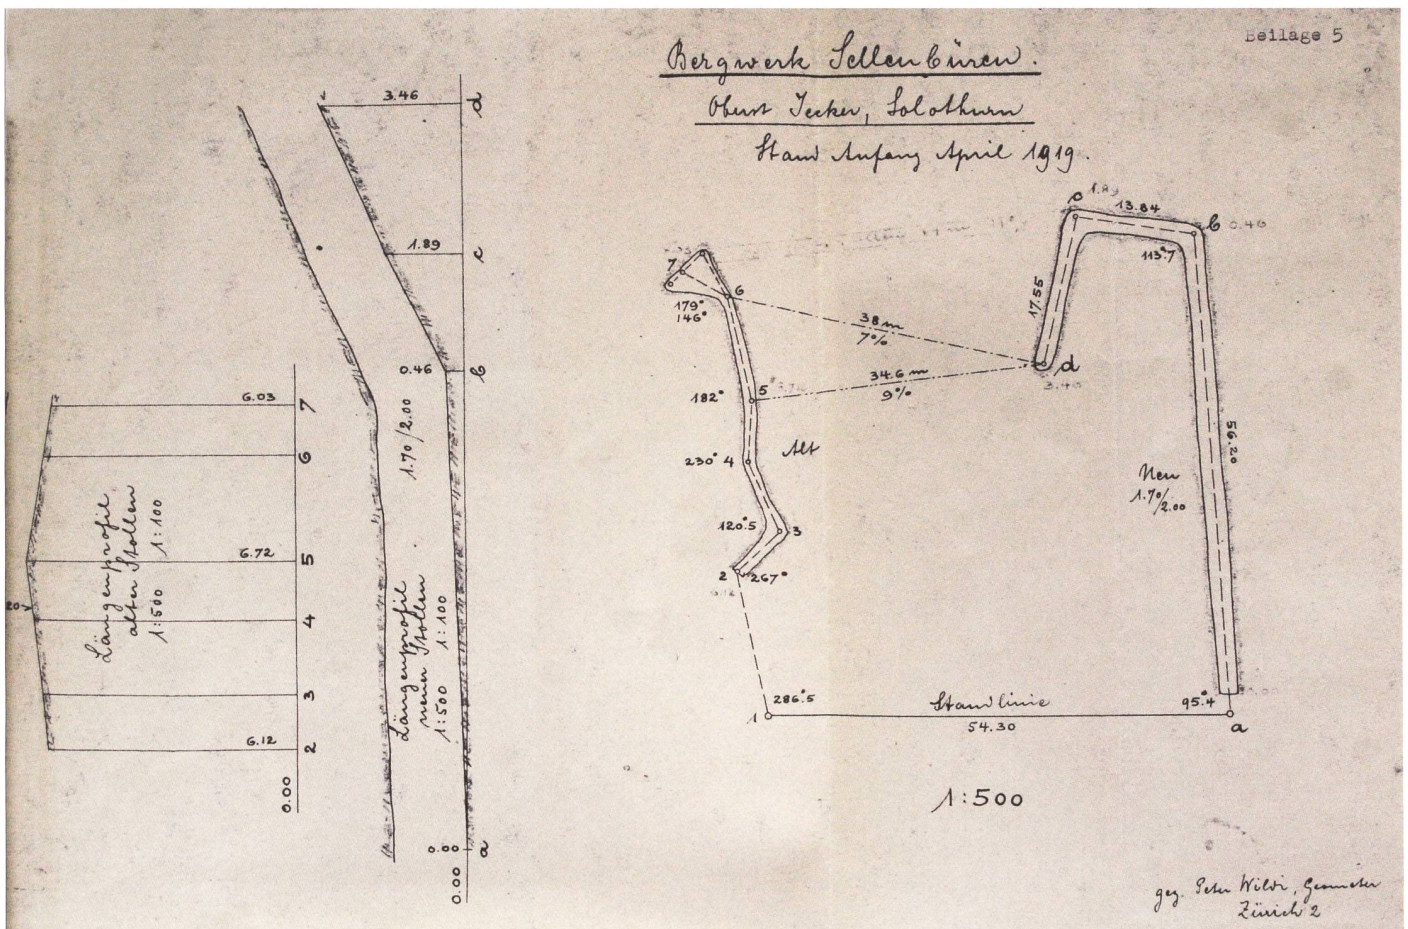 Beilage 5
Bergwerk Sellenbüren.
Oberst Jecker, Solothurn
Stand Anfang April 1919.
3.46
d
1.89
c
0.46
b
1.70/2.00
Längenprofil
neuer Stollen
1:500 1:100
0.00
a
0.00
6.03
7
6
6.72
5
4
3
6.12
2
0.00
20
Längenprofil
alter Stollen
1:500 1:100
c 1.89
13.84
b 0.46
113°7
17.55
d
3.46
56.20
Neu
1.70/2.00
7
6
179°
146°
38 m
7%
34.6 m
9%
182°
5
Alt
230° 4
120°5
3
2
267°
286°5
1
Standlinie
54.30
95°4
a
1:500
gez. Peter Wildi, Geometer
Zürich 2